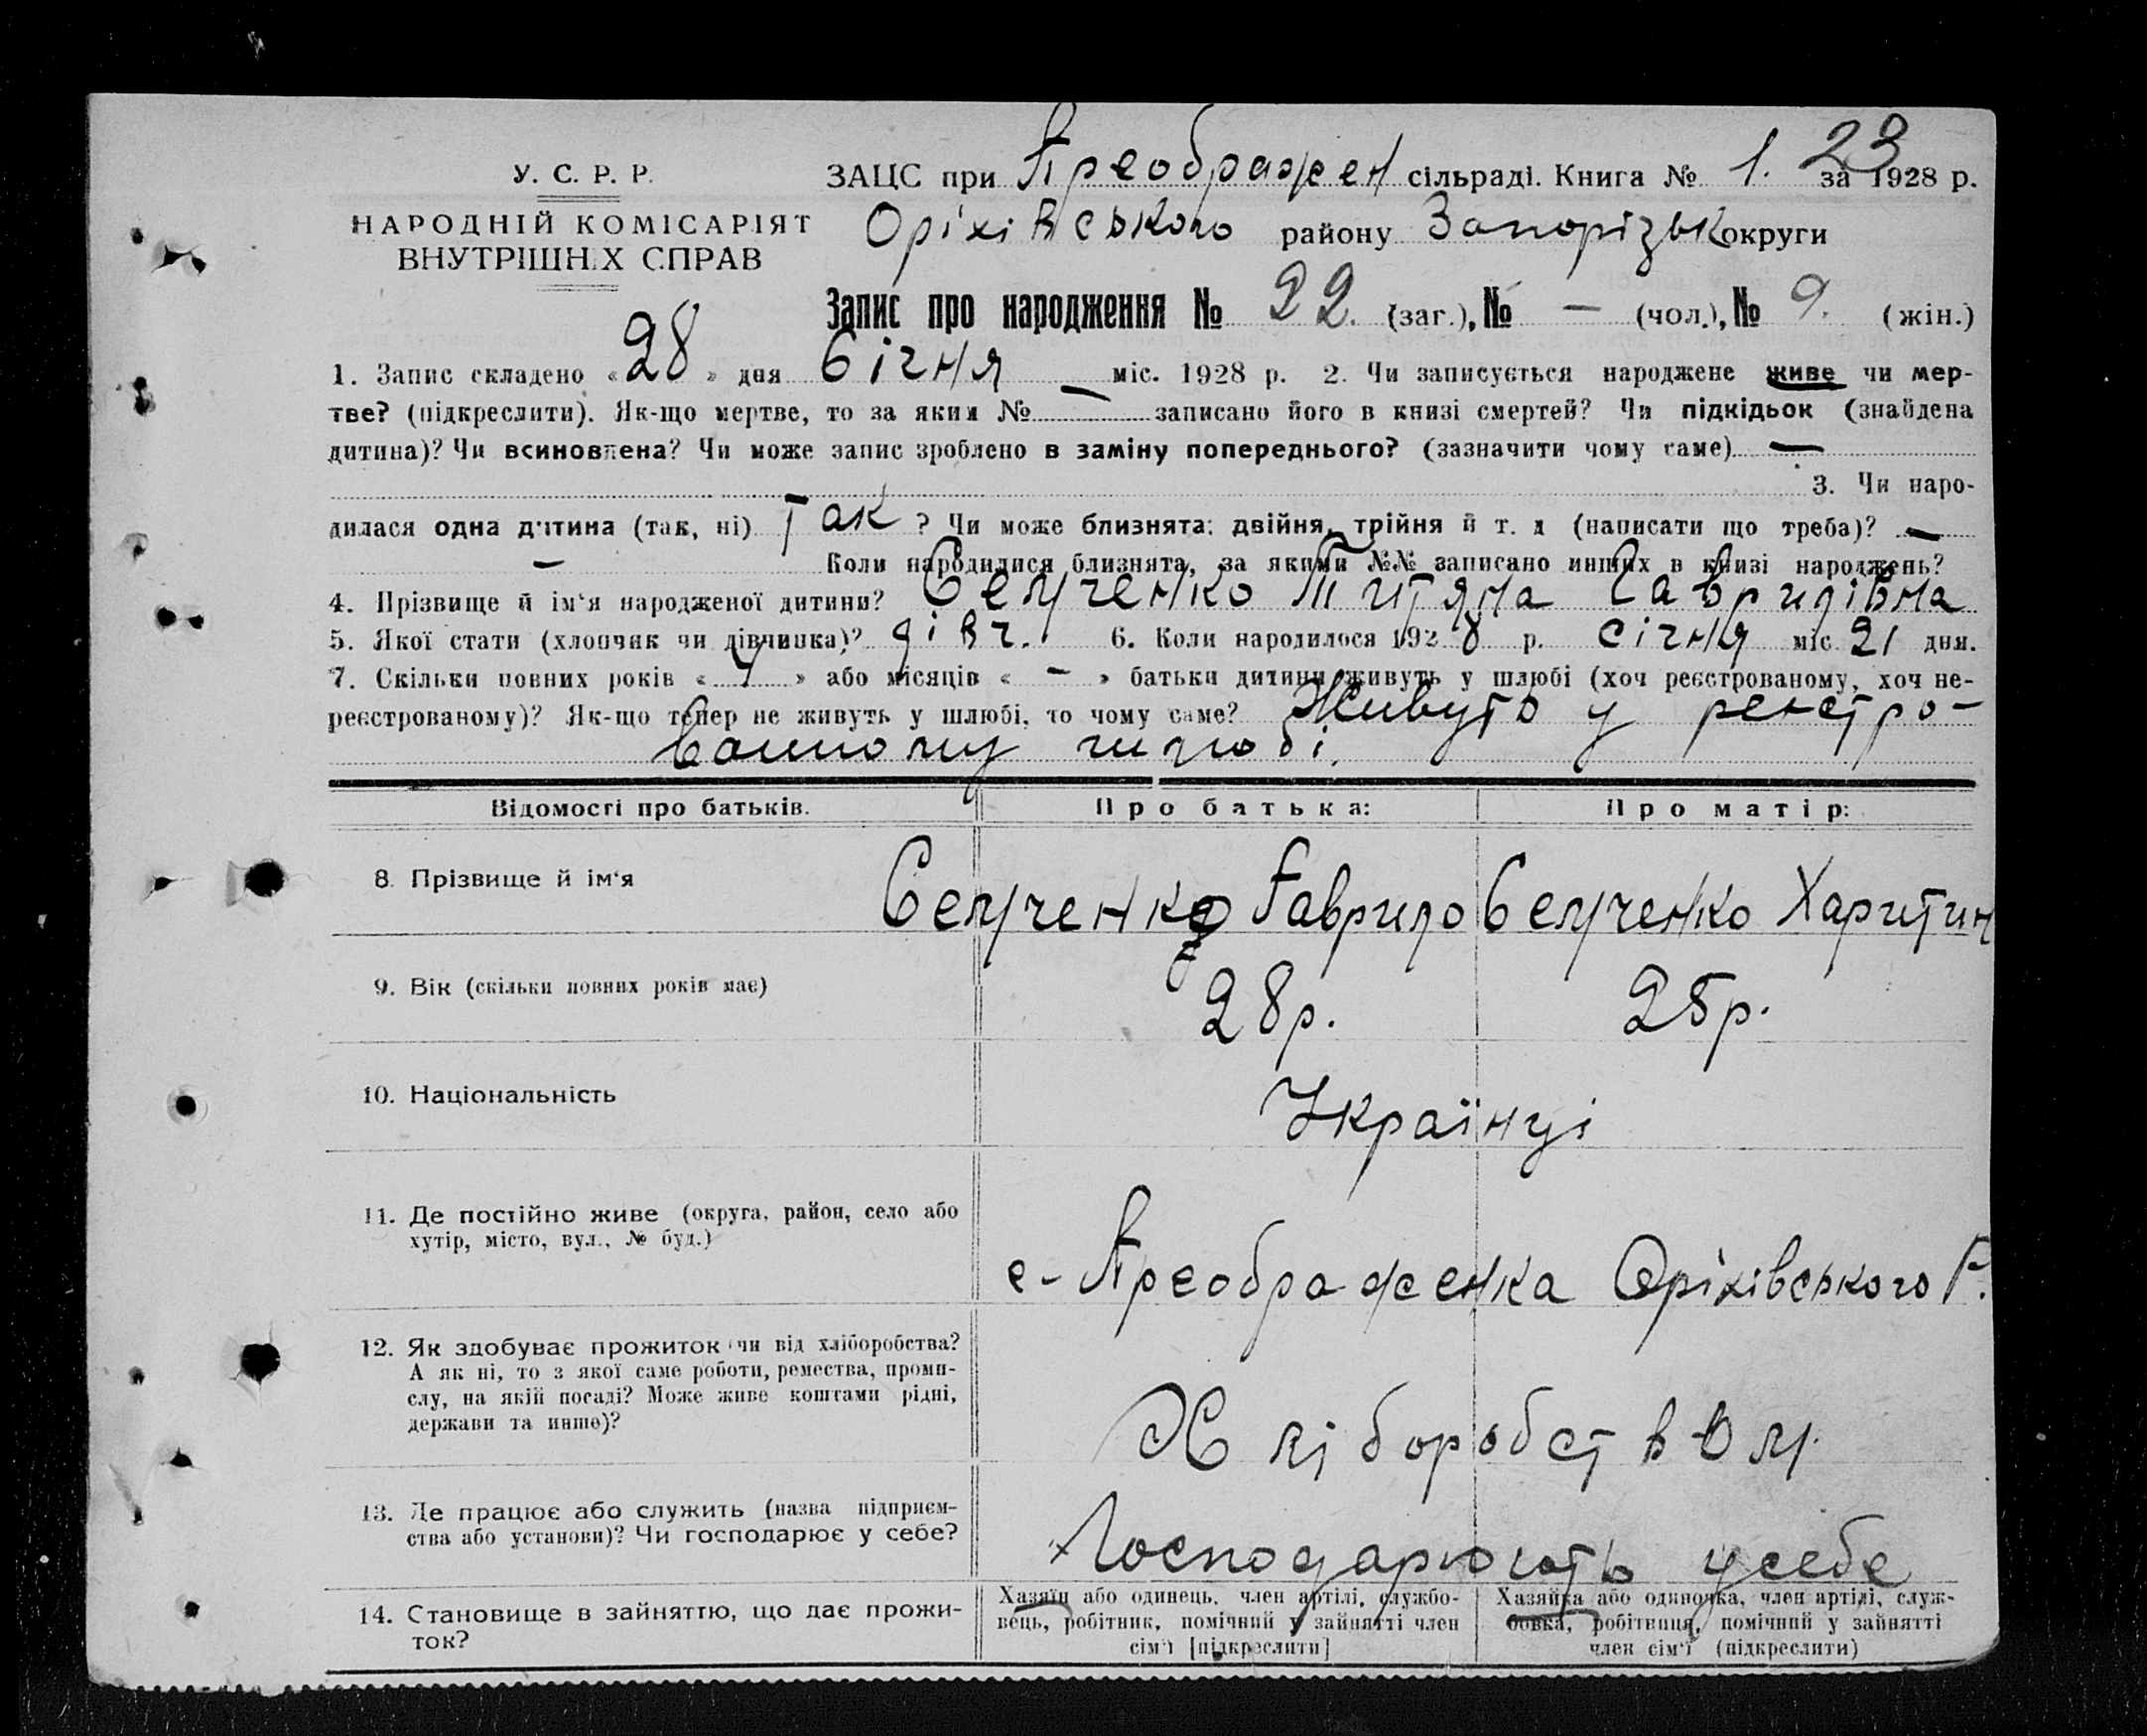 23
У. С. Р. Р.
ЗАЦС при Преображен сільраді. Книга № 1. за 1928 р.
НАРОДНІЙ КОМІСАРІЯТ
ВНУТРІШНІХ СПРАВ
Оріхівського району Запорізьк округи
Запис про народження № 22. (заг.), № — (чол.), № 9. (жін.)
1. Запис складено «28» дня Січня міс. 1928 р. 2. Чи записується народжене живе чи мер-
тве? (підкреслити). Як-що мертве, то за яким № — записано його в книзі смертей? Чи підкідьок (знайдена
дитина)? Чи всиновлена? Чи може запис зроблено в заміну попереднього? (зазначити чому саме) —
3. Чи наро-
дилася одна дитина (так, ні) Так ? Чи може близнята: двійня, трійня й т. д (написати що треба)? —
— Коли народилися близнята, за якими №№ записано инших в книзі народжень?
4. Прізвище й ім‘я народженої дитини? Семченко Титяна Гаврилівна
5. Якої стати (хлопчик чи дівчинка)? дівч. 6. Коли народилося 1928 р. січня міс. 21 дня.
7. Скільки повних років « 7 » або місяців « — » батьки дитини живуть у шлюбі (хоч реєстрованому, хоч не-
реєстрованому)? Як-що тепер не живуть у шлюбі, то чому саме? Живуть у реєстро-
ванному шлюбі.
Відомості про батьків. Про батька: Про матір:
8. Прізвище й ім‘я Семченко Гаврило Семченко Харитин
9. Вік (скільки повних років має) 28р. 25р.
10. Національність Українці
11. Де постійно живе (округа, район, село або
хутір, місто, вул., № буд.)
с- Преображенка Оріхівського Р.
12. Як здобуває прожиток чи від хліборобства?
А як ні, то з якої саме роботи, ремества, проми-
слу, на якій посаді? Може живе коштами рідні,
держави та инше)?
Хліборобством.
13. Де працює або служить (назва підприєм-
ства або установи)? Чи господарює у себе?
Господарюють усебе
14. Становище в зайняттю, що дає прожи-
ток?
Хазяїн або одинець, член артілі, службо-
вець, робітник, помічний у зайнятті член
сім‘ї [підкреслити]
Хазяйка або одиночка, член артілі, служ-
бовка, робітниця, помічний у зайнятті
член сім‘ї (підкреслити)